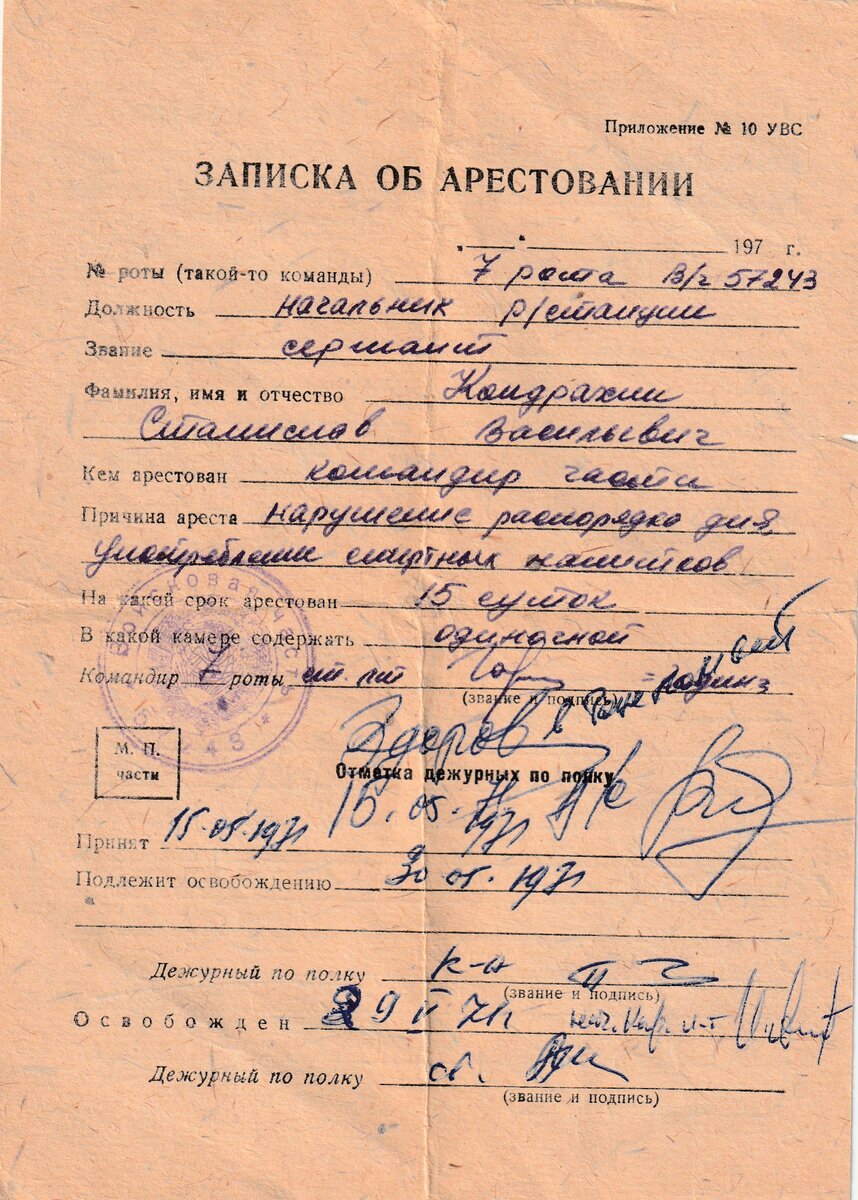 Приложение № 10 УВС
ЗАПИСКА ОБ АРЕСТОВАНИИ
197 г.
№ роты (такой-то команды) 7 рота В/ч 57243
Должность начальник р/станции
Звание сержант
Фамилия, имя и отчество Кондрахин
Станислав Васильевич
Кем арестован командир части
Причина ареста нарушение распорядка дня,
употребление спиртных напитков
На какой срок арестован 15 суток
В какой камере содержать одиночной
Командир 7 роты ст. л-т
(звание и подпись)
Здоров в
М. П.
части
Отметка дежурных по полку
15.05.1971
Принят 15.05.1971
Подлежит освобождению 30 05. 1971
Дежурный по полку к-н
(звание и подпись)
Освобожден 29 V 71 нач. кар. л-т
Дежурный по полку
(звание и подпись)